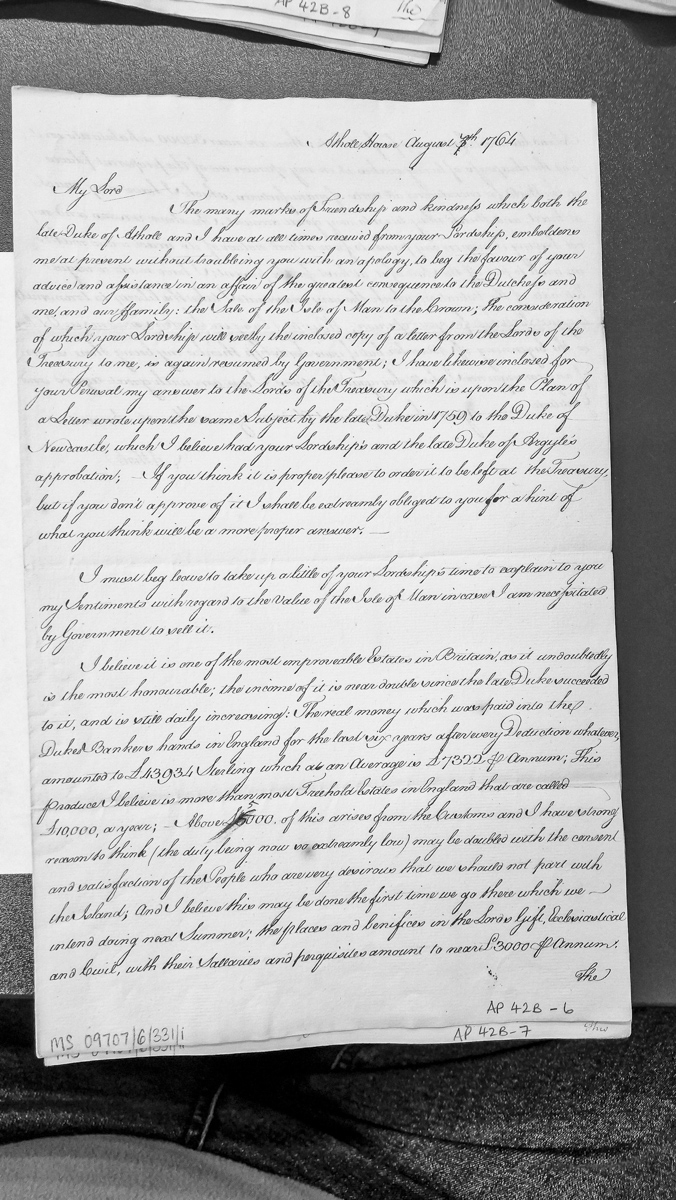 AP 42B-8
The
Atholl House August 7th. 1764
My Lord
The many marks of Friendship and kindness which both the
late Duke of Atholl and I have at all times received from your Lordship, emboldens
me at present without troubleing you with an apology, to beg the favour of your
advice and assistance in an affair of the greatest consequence to the Dutchess and
me, and our ffamily: the Sale of the Isle of Man to the Crown; the consideration
of which your Lordship will see by the inclosed copy of a letter from the Lords of the
Treasury to me, is again resumed by Government; I have likewise inclosed for
your Perusal my answer to the Lords of the Treasury which is upon the Plan of
a Letter wrote upon the same Subject by the late Duke in 1759 to the Duke of
Newcastle, which I believe had your Lordship's and the late Duke of Argyle's
approbation; – If you think it is proper please to order it to be left at the Treasury,
but if you don't approve of it I shall be extreamly obliged to you for a hint of
what you think will be a more proper answer. —
I must beg leave to take up a little of your Lordship's time to explain to you
my Sentiments with regard to the Value of the Isle of Man in case I am necessitated
by Government to sell it.
I believe it is one of the most improveable Estates in Britain, as it undoubtedly
is the most honourable; the income of it is near double since the late Duke succeeded
to it, and is still daily increasing: The real money which was paid into the
Dukes Bankers hands in England for the last six years after every Deduction whatever,
amounted to £43934 Sterling which at an Average is £7322 ⅌ Annum; This
produce I believe is more than most Freehold Estates in England that are called
£10,000, a year; – Above 000. of this arises from the Customs and I have strong
reason to think (the duty being now so extreamly low) may be doubled with the consent
and satisfaction of the People who are very desirous that we should not part with
the Island; And I believe this may be done the first time we go there which we —
intend doing next Summer; the places and benifices in the Lords Gift, Ecclesiastical
and Civil, with their Sallaries and perquisites amount to near £3000 ⅌ Annum.
The
AP 42B-6
MS 09707/6/331/i
AP 42B-7